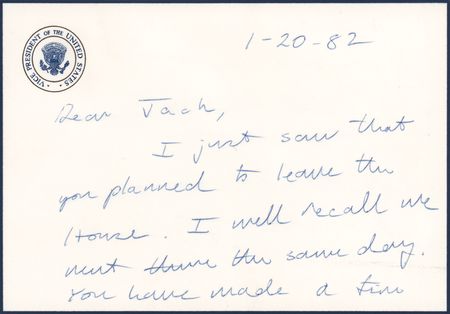 VICE PRESIDENT OF THE UNITED STATES
1-20-82
Dear Jack,
I just saw that
you planned to leave the
House. I well recall we
went there the same day.
You have made a fine